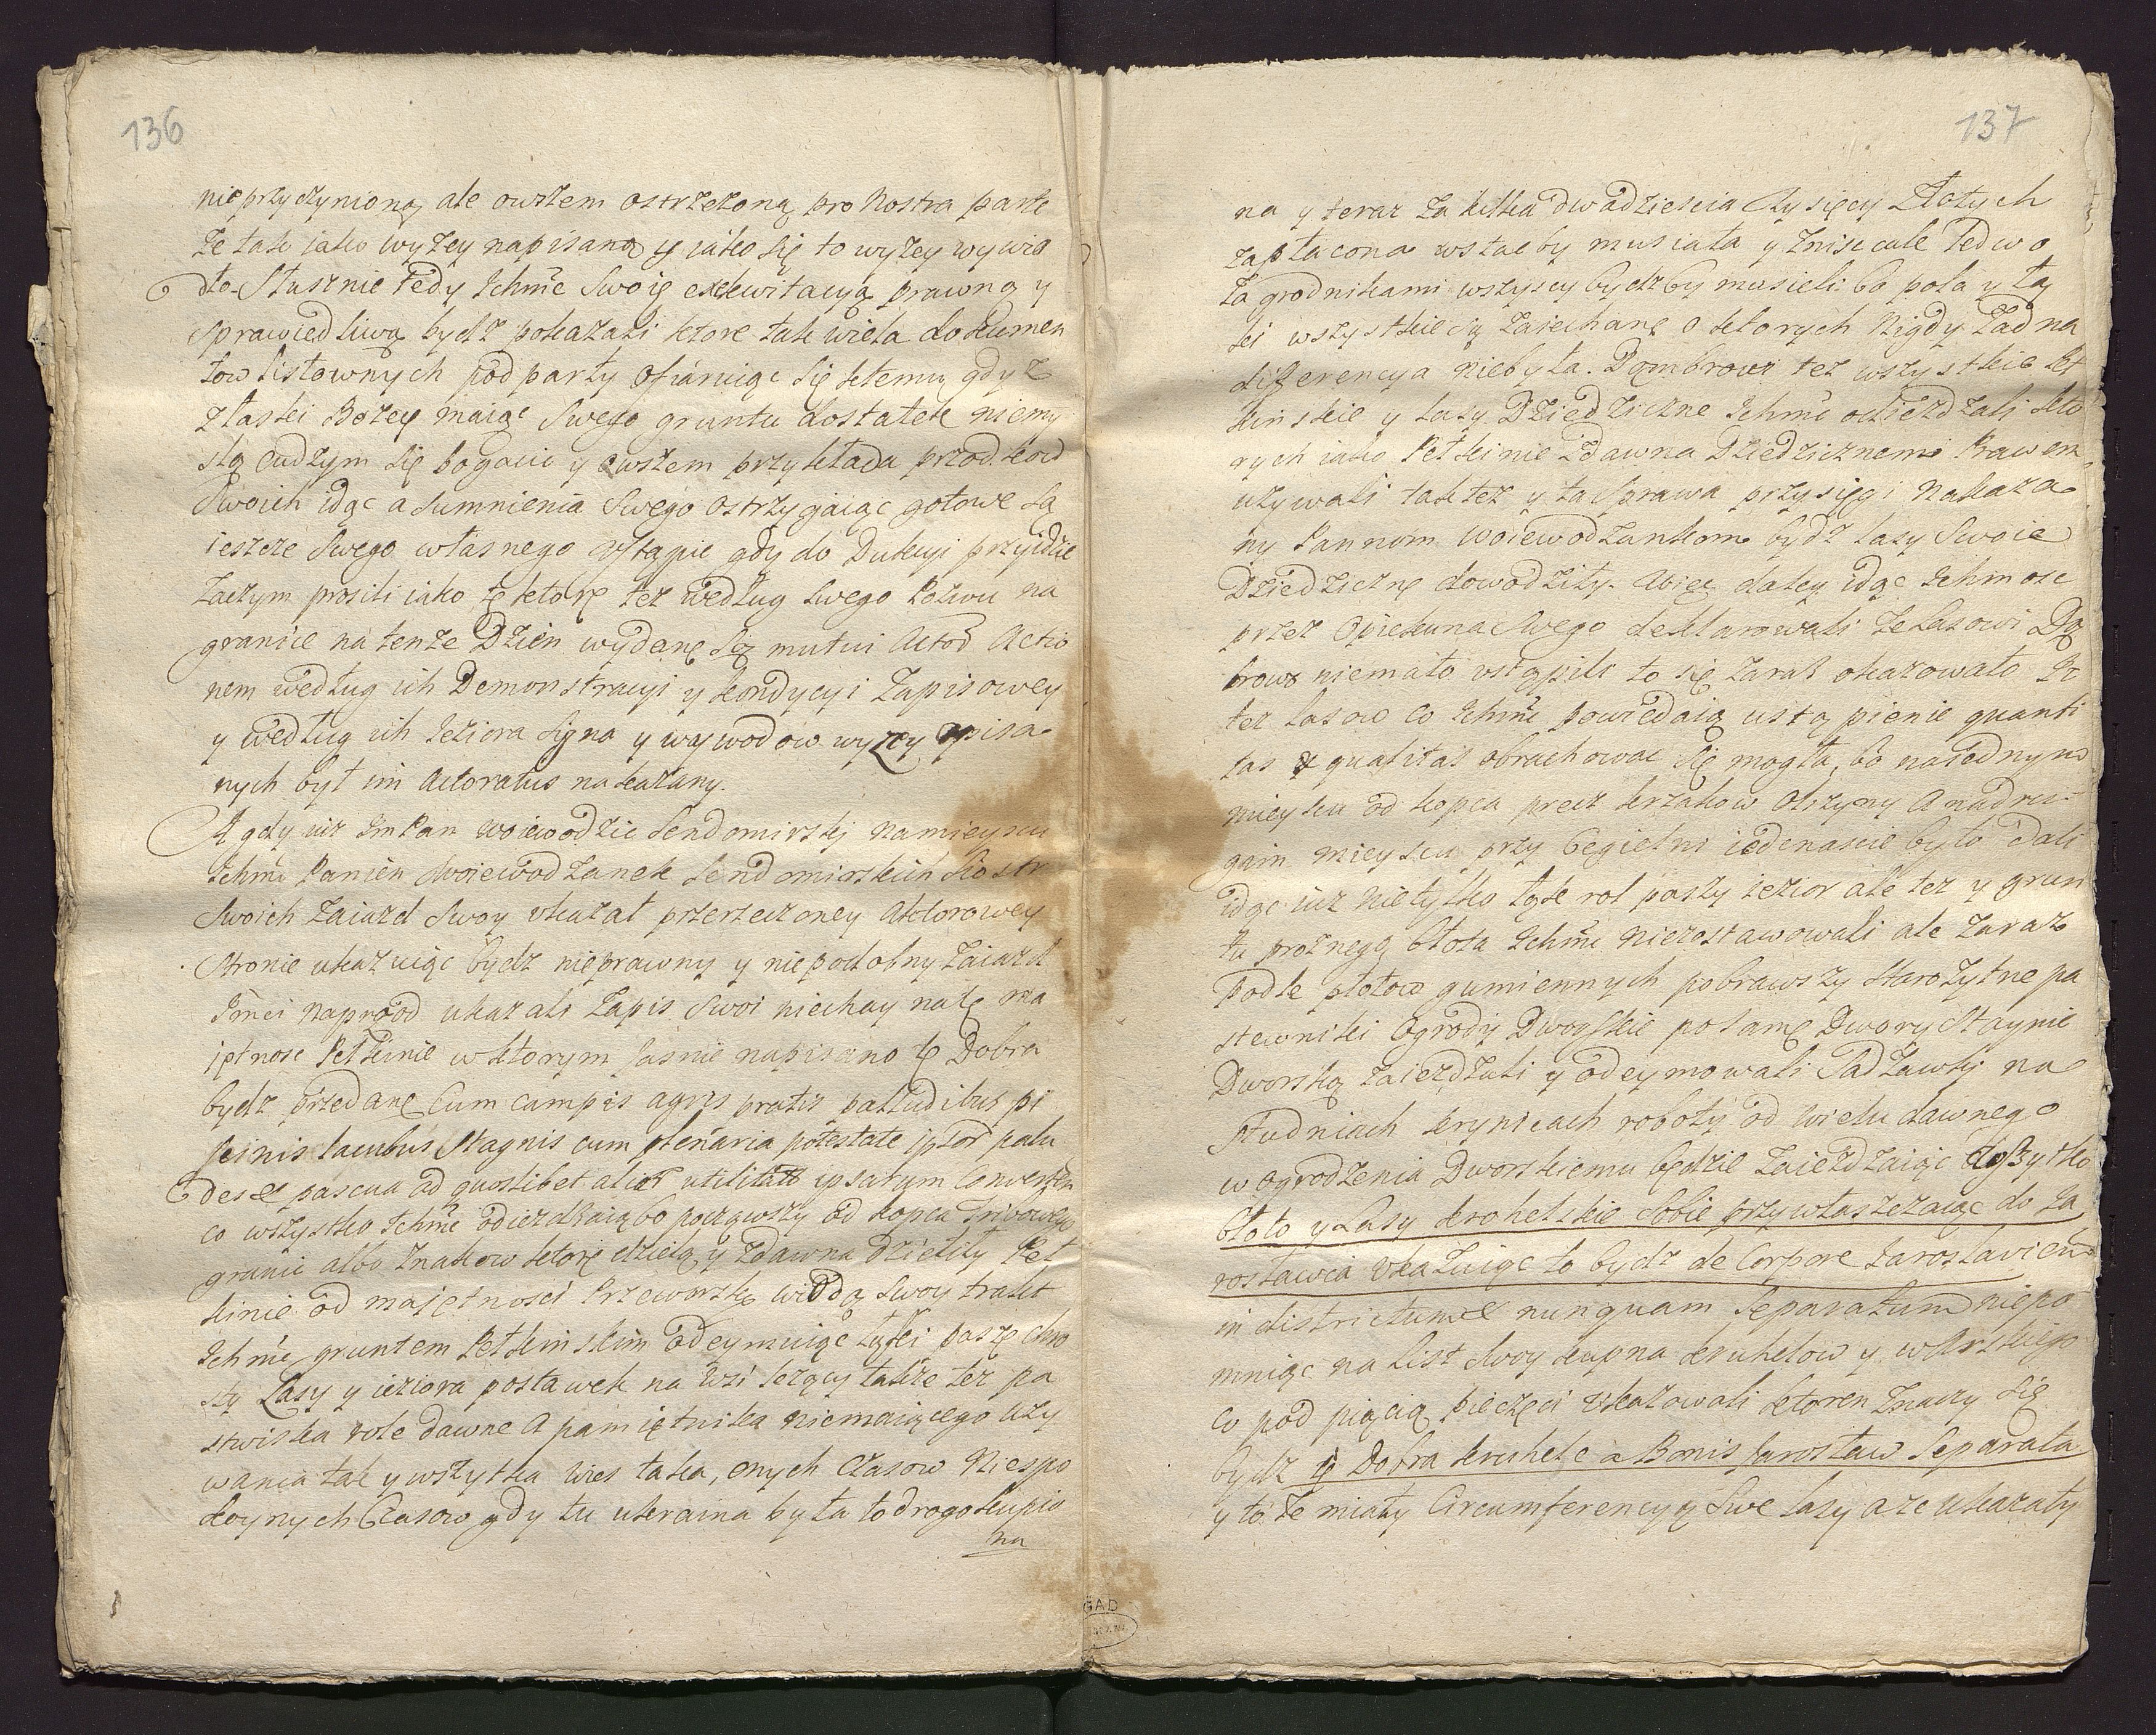 136
nieprzyczynioną, ale owszem ostrzeżoną pro Nostra parte
że tak iako wyżey napisano y iako się to wyżey wywio
dło. Słusznie tedy Ichmć Swoię exekwitacyą prawną y
Sprawiedliwą bydź pokazali ktore tak wiela dokumen
tow listownych podparły ofiaruiąc się ktemu gdyż
z łaski Bożey maiąc Swego gruntu dostatek niemy
slą cudzym się bogacic y owszem przykłada przodkow
Swoich idąc a Sumnienia Swego ostrzygaiąc gotowe są
ieszcze Swego własnego ustąpic gdy do Dukcyi przyidzie
Zaczym prosili iako te ktore też według Swego Pozwu na
granice na tenże Dzień wydane są mutui Actor Actio
nem według ich Demonstracyi y kondycyi Zapisowey
y według ich Ieziora Signa y wywodow wyżey opisa
nych był im Actoratus nakazany.
A gdy iuż ImPan Woiewodzic Sendomirskj namieyscu
Ichmć Panien Woiewodzanek Sendomirskich Siostr
Swoich Zaiazd Swoy ukazał przerzeczoney Aktorowey
Stronie ukazuiąc bydz nieprawny y niepodobny Zaiazd
Imci naprzod ukazali Zapis Swoi niechay na tę ma
iętnosc Pełkinie w ktorym Iasnie napisano te Dobra
bydz przedane Cum campis agris pratis palludibus pi
scinis lacubus Stagnis cum plenaria potestate ipsor palu
des et pascua ad quoslibet alios utilitates ipsarum Converten
co wszystko Ichmć odieżdzaią bo począwszy od kopca
granic albo Znakow ktore dzielą y zdawna dzieliły Peł
kinie od maiętnosci Przeworska wiodą Swoy trakt
Ichmć gruntem Pełkinskim odeymuiąc Łąki pasze chro
sty Lasy y ieziora postawek na Wsi leżący także też pa
stwiska role dawne a pamiętnika niemaiącego uży
wania tak y wszytka wies taka, onych Czasow Niespo
koynych Czasow gdy tu ukraina była to drogo kupio
na
137
na y teraz za kilka dwadziescia Tysięcy Złotych
zapłacona wstac by musiała y zniscale ledwo
zagrodnikami wszyscy bydz by musieli bo pola y łą
ki wszystkie są zaiechane o ktorych Nigdy Żadna
differencya niebyła. Dąmbrowi też wszystkie Peł
kinskie y Lasy Dziedziczne Ichmć odieżdzali kto
rych iako Pełkinie Zdawna Dziedzicznemi Prawem
używali takteż y ta Sprawa przysięgi Nakaza
ny Pannom Woiewodzankom bydź Lasy Swoie
Dziedziczne dowodziły. Więc daley idąc Ichmosc
przez Opiekuna Swego deklarowali że Lasowi Dą
brow niemało ustąpili to się zaraz okazowało Iż
też Lasow co Ichmć powiedaią ustąpienie quanti
tas y qualitas obrachowac się mogła, bo na iednym
mieyscu od kopca przez krzakow Olszyny a nadru=
gim mieyscu przy Cegielni iedenascie było Dali
idąc iuż nietylko tyle rol paszy iezior ale też y grun
tu prożnego Błota Ichmć niezostawowali ale zaraz
podle płotow gumiennych pobrawszy Starożytne pa
stewniki Ogrody Dworskie połamę Dwory Staynie
Dworską zaieżdżali y odeymowali Sadzawki na
Studniach krynicach roboty od wieku dawnego
w ogrodzenia Dworskiemu będzie Zaieżdzaiąc
Błoto y Lasy kruhelskie Sobie przywłaszczaiąc do Ia
rosławia ukazuiąc to bydź de Corpore Iaroslavien
in districtum et nunquam Separatum niepo
mniąc na list Swoy kupna kruhelow y
co pod piącią pieczęci ukazowali ktoren Znaczy się
bydz te Dobra kruhele a Bonis Jarosław Separata
y to że miały Circumferencyą Swe Lasy a ze ukazały
GAD